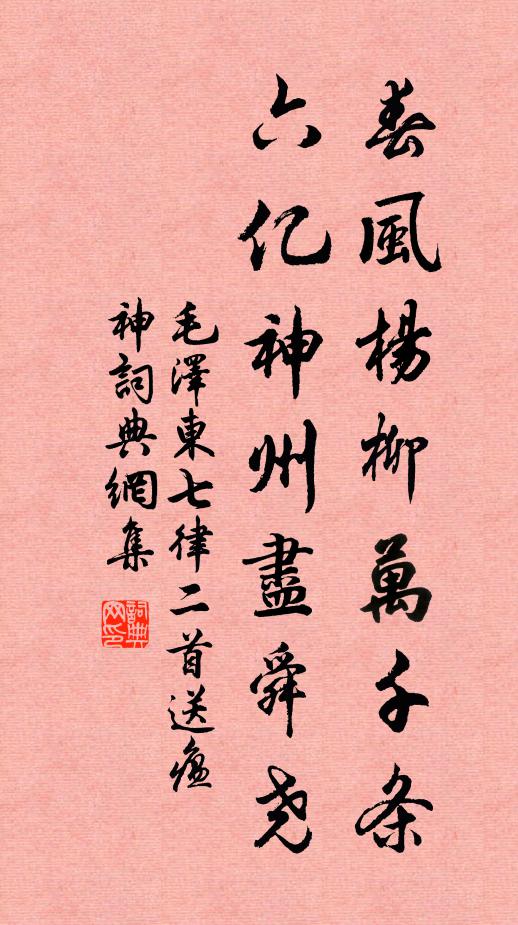 春風楊柳萬千条
六亿神州盡舜尧
毛澤東七律二首送瘟
神詞典網集
詞典网印